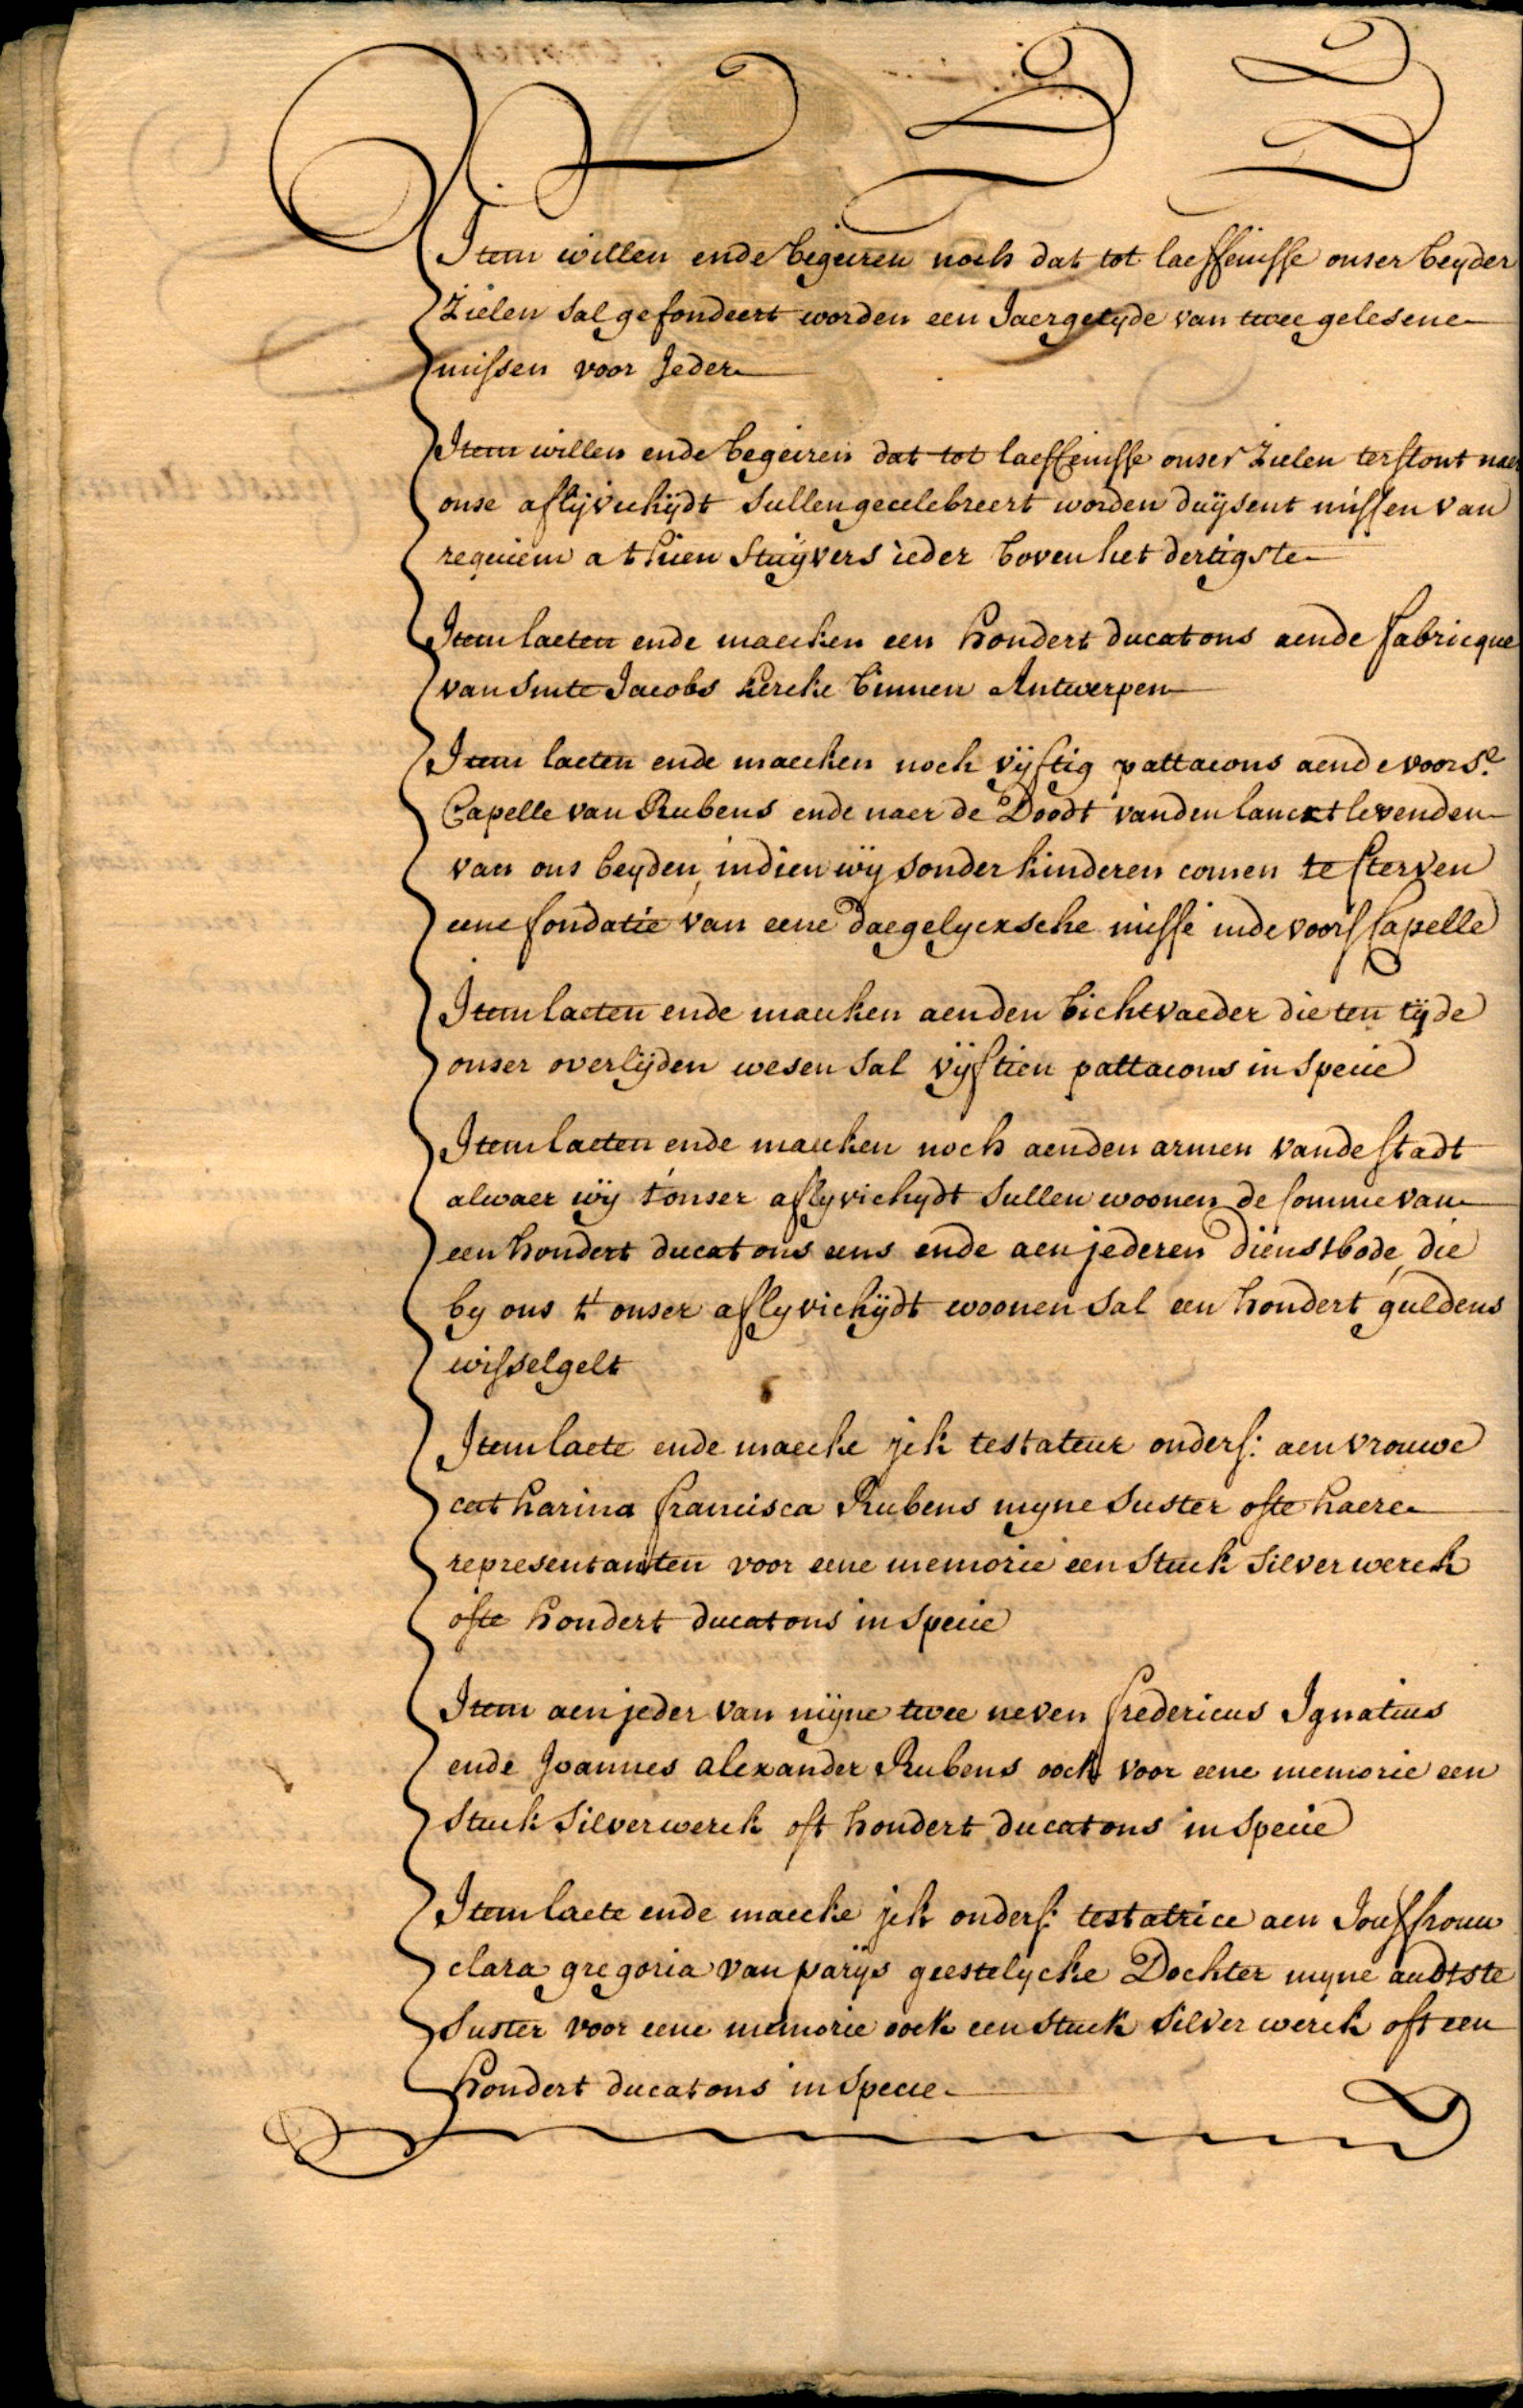 Item willen ende begeiren noch dat tot laeffenisse onser beyder
Zielen sal gefondeert worden een Jaergetyde van twee gelesene
missen voor Jeder
Item willen ende begeiren dat tot laeffenisse onser Zielen terstont naer
onse aflijvicheijdt sullen gecelebreert worden duijsent missen van
requiem a thien stuijvers ieder boven het dertigste
Item laeten ende maecken een hondert ducatons aende fabricque
van Sinte Jacobs kercke binnen Antwerpen
Item laeten ende maecken noch vijftig pattacons aende voors.e
Capelle van Rubens ende naer de Doodt vanden lancxtlevenden
van ons beyden, indien wij sonder kinderen comen te sterven
eene fondatie van eene daegelycksche misse inde voors Capelle
Item laeten ende maecken aenden bichtvaeder die ten tijde
onser overlijden wesen sal vijftien pattacons in specie
Item laeten ende maecken noch aenden armen vande stadt
alwaer wij t'onser aflyvicheydt sullen woonen de somme van
een hondert ducatons eens ende aen jederen dienstbode, die
by ons t' onser aflyvicheijdt woonen sal een hondert guldens
wisselgelt
Item laete ende maecke jck testateur onders: aen vrouwe
catharina francisca Rubens myne suster ofte haere
representanten voor eene memorie een stuck silverwerck
ofte hondert ducatons in specie
Item aen jeder van mijne twee neven fredericus Ignatius
ende Joannes alexander Rubens oock voor eene memorie een
stuck silverwerck oft hondert ducatons in specie
Item laete ende maecke jck onders: testatrice aen Jouffrouw
clara gregoria van parijs geestelycke Dochter myne audtste
suster voor eene memorie oock een stuck silverwerck oft een
hondert ducatons in specie